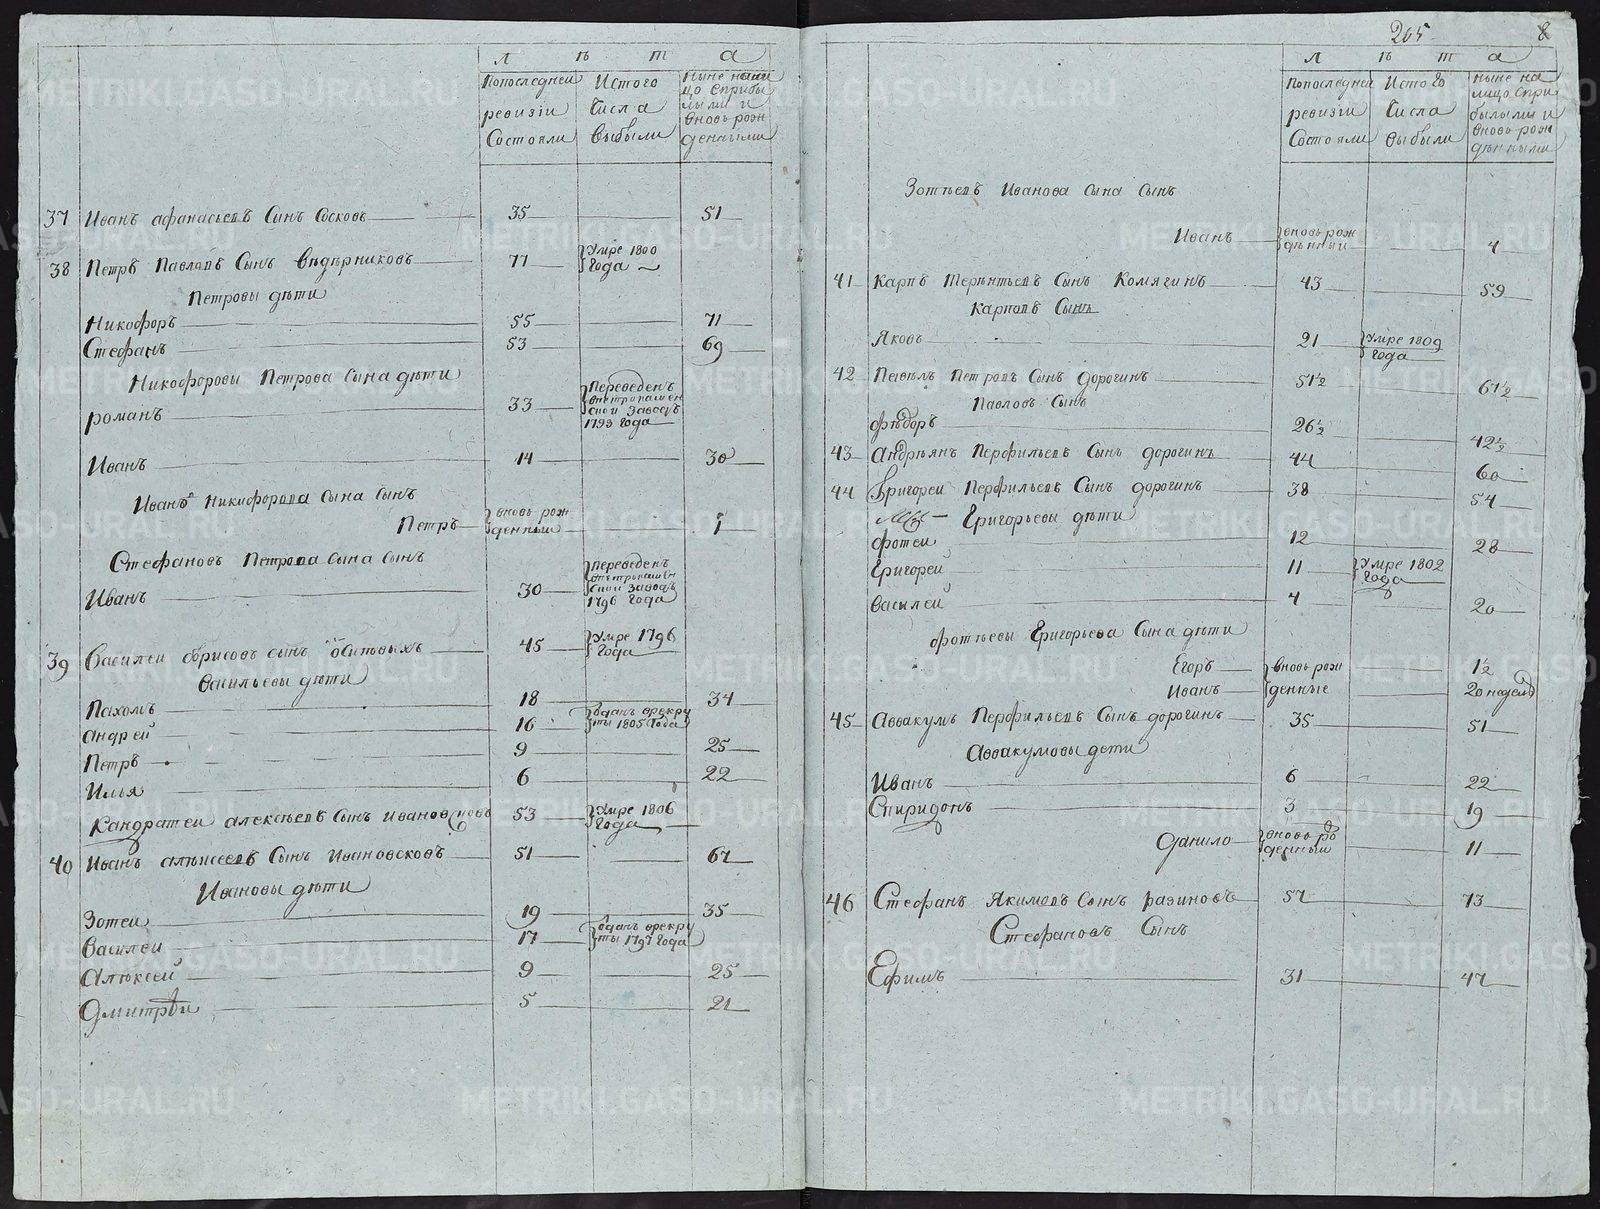 л ѣ т а
Попоследней ревизіи Состояли
Истого Числа Выбыли
Ныне нали цо Сприбы лыми и Вновь рож денными
37 Иванъ афанасьевъ Сынъ Сосковъ 35 51
38 Петръ Павловъ Сынъ Ведѣрниковъ 77 Умре 1800 года
Петровы дѣти
Никифоръ 55 71
Стефанъ 53 69
Никифоровы Петрова Сына дѣти
романъ 33 Переведенъ Заводъ 1793 года
Иванъ 14 30
Иванъ Никифорова Сына Сынъ
Петръ вновь рож денный 1
Стефановъ Петрова Сына Сынъ
Иванъ 30 Переведенъ Заводъ 1796 года
39 Василей борисовъ сынъ 45 Умре 1796 года
Васильевы дѣти
Пахомъ 18 34
андрей 16 отданъ врекру ты 1805 года
Петръ 9 25
Илья 6 22
Кандратей алексѣевъ Сынъ Ивановсковъ 53 Умре 1806 года
40 Иванъ алѣксеевъ Сынъ Ивановсковъ 51 67
Ивановы дѣти
Зотей 19 35
Василей 17 отданъ врекру ты 1797 года
Алѣксей 9 25
Дмитрѣй 5 21
265 8
л ѣ т а
Попоследней ревизіи Состояли
Истого Числа Выбыли
ныне на лицо Спри былыми и вновь рож дѣнными
Зотьевъ Иванова Сына Сынъ
Иванъ вновь рож дѣнный 4
41 Карпъ Терѣнтьевъ Сынъ Комягинъ 43 59
Карповъ Сынъ
Яковъ 21 Умре 1809 года
42 Павѣлъ Петровъ Сынъ дорогинъ 51½ 67½
Павловъ Сынъ
фѣдоръ 26½ 42½
43 Андрѣянъ Перфильевъ Сынъ дорогинъ 44 60
44 Григорей Перфильевъ Сынъ дорогинъ 38 54
Григорьевы дѣти
фотей 12 28
Григорей 11 Умре 1802 года
Василей 4 20
фотѣевы Григорьева Сына дѣти
Егоръ вновь рож 1½
Иванъ денные 20 недель
45 Аввакумъ Перфильевъ Сынъ дорогинъ 35 51
Аввакумовы дети
Иванъ 6 22
Спиридонъ 3 19
Данило вновь ро жденный 11
46 Стефанъ Якимовъ Сынъ разиновъ 57 73
Стефановъ Сынъ
Ефимъ 31 47
METRIKI.GASO-URAL.RU